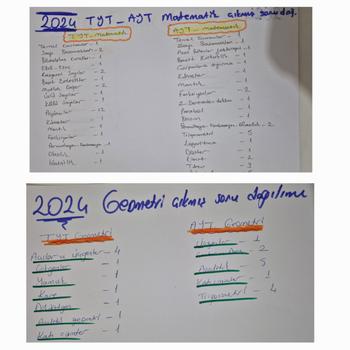 2024 TYT-AYT Matematik çıkmış soru dağ.
TYT-Matematik
Temel Kavramlar - 1
Sayı Basamakları - 2
Bölünebilme Kuralları - 1
EBOB - EKOK - 1
Rasyonel Sayılar - 2
Basit Eşitsizlikler - 1
Mutlak Değer - 2
Üslü Sayılar - 1
Köklü Sayılar - 1
Problemler - 12
Kümeler - 1
Mantık - 1
Fonksiyonlar - 1
Permütasyon - Kombinasyon - 1
Olasılık - 1
İstatistik - 1
AYT-Matematik
Temel Kavramlar - 1
Sayı Basamakları - 1
Asal Çarpanlar - 1
Basit Eşitsizlik - 1
Çarpanlara ayırma - 1
Kümeler - 1
Mantık - 1
Fonksiyonlar - 2
2. Dereceden denklem - 1
Parabol - 1
Polinom - 1
Permütasyon - Kombinasyon - Olasılık - 2
Trigonometri - 5
Logaritma - 1
Diziler - 1
Limit - 2
Türev - 3
2024 Geometri çıkmış soru dağılımı
TYT Geometri
Açılar ve üçgenler - 4
Çokgenler - 1
Yamuk - 1
Kare - 1
- 1
Analitik geometri - 1
Katı cisimler - 1
AYT Geometri
- 1
- 2
Analitik - 5
Katı cisimler - 1
Trigonometri - 4